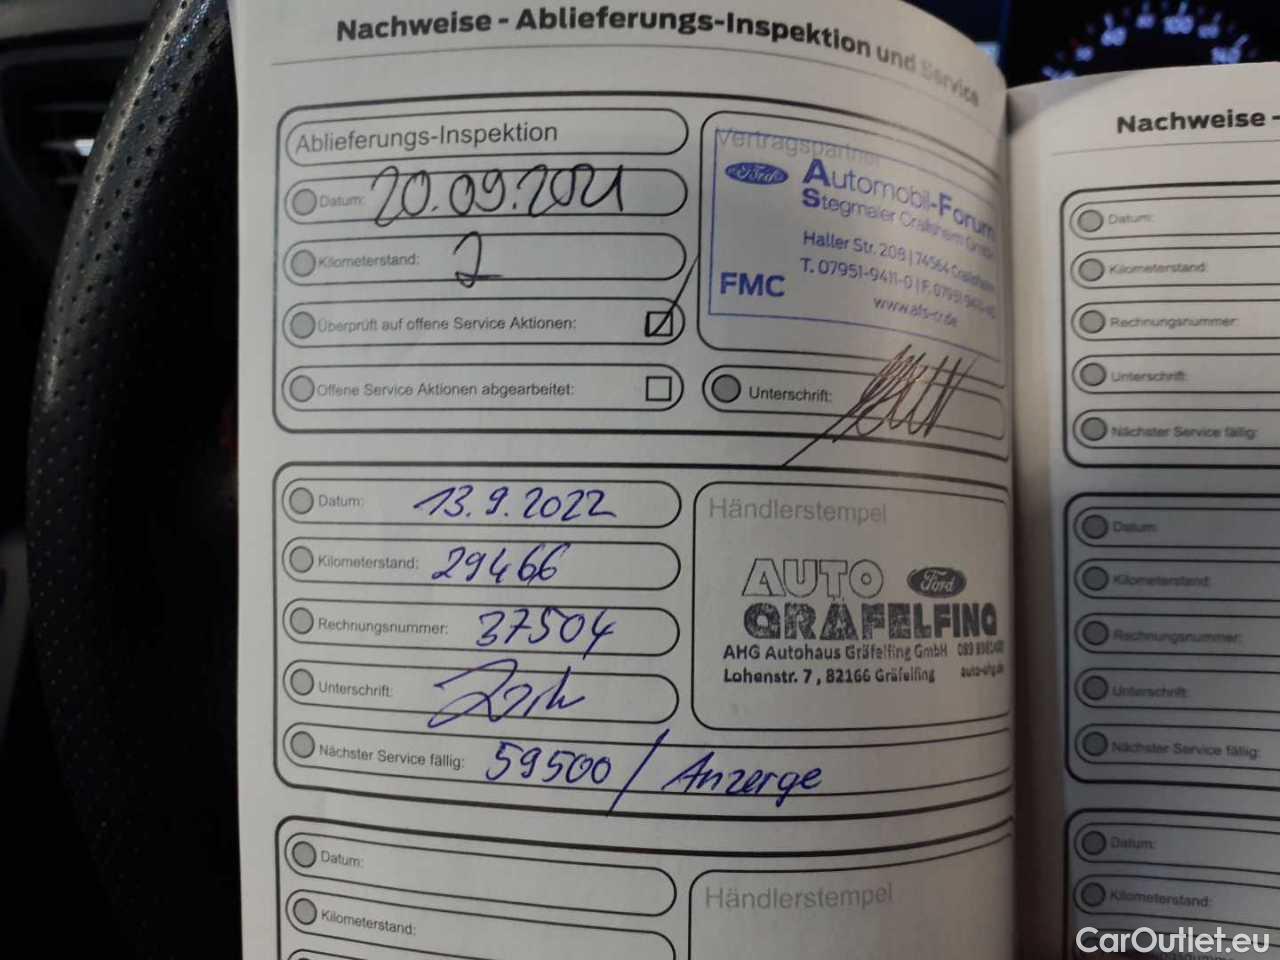 Nachweise - Ablieferungs-Inspektion und Service
Ablieferungs-Inspektion
Datum: 20.09.2021
Kilometerstand: 2
Überprüft auf offene Service Aktionen:
Offene Service Aktionen abgearbeitet:
Vertragspartner
Ford
Automobil-Forum
Stegmaier Crailsheim GmbH
Haller Str. 208 | 74564 Crailsheim
T. 07951-9411-0 | F. 07951
FMC
www.afs-cr.de
Unterschrift:
Datum: 13.9.2022
Kilometerstand: 29466
Rechnungsnummer: 37504
Unterschrift:
Nächster Service fällig: 59500 / Anzeige
Händlerstempel
AUTO Ford
GRÄFELFING
AHG Autohaus Gräfelfing GmbH
Lohenstr. 7, 82166 Gräfelfing auto-ahg.de
Datum:
Kilometerstand:
Händlerstempel
Nachweise -
Datum:
Kilometerstand:
Rechnungsnummer:
Unterschrift:
Nächster Service fällig:
Datum:
Kilometerstand:
Rechnungsnummer:
Unterschrift:
Nächster Service fällig:
Datum:
Kilometerstand:
60
100
140
CarOutlet.eu